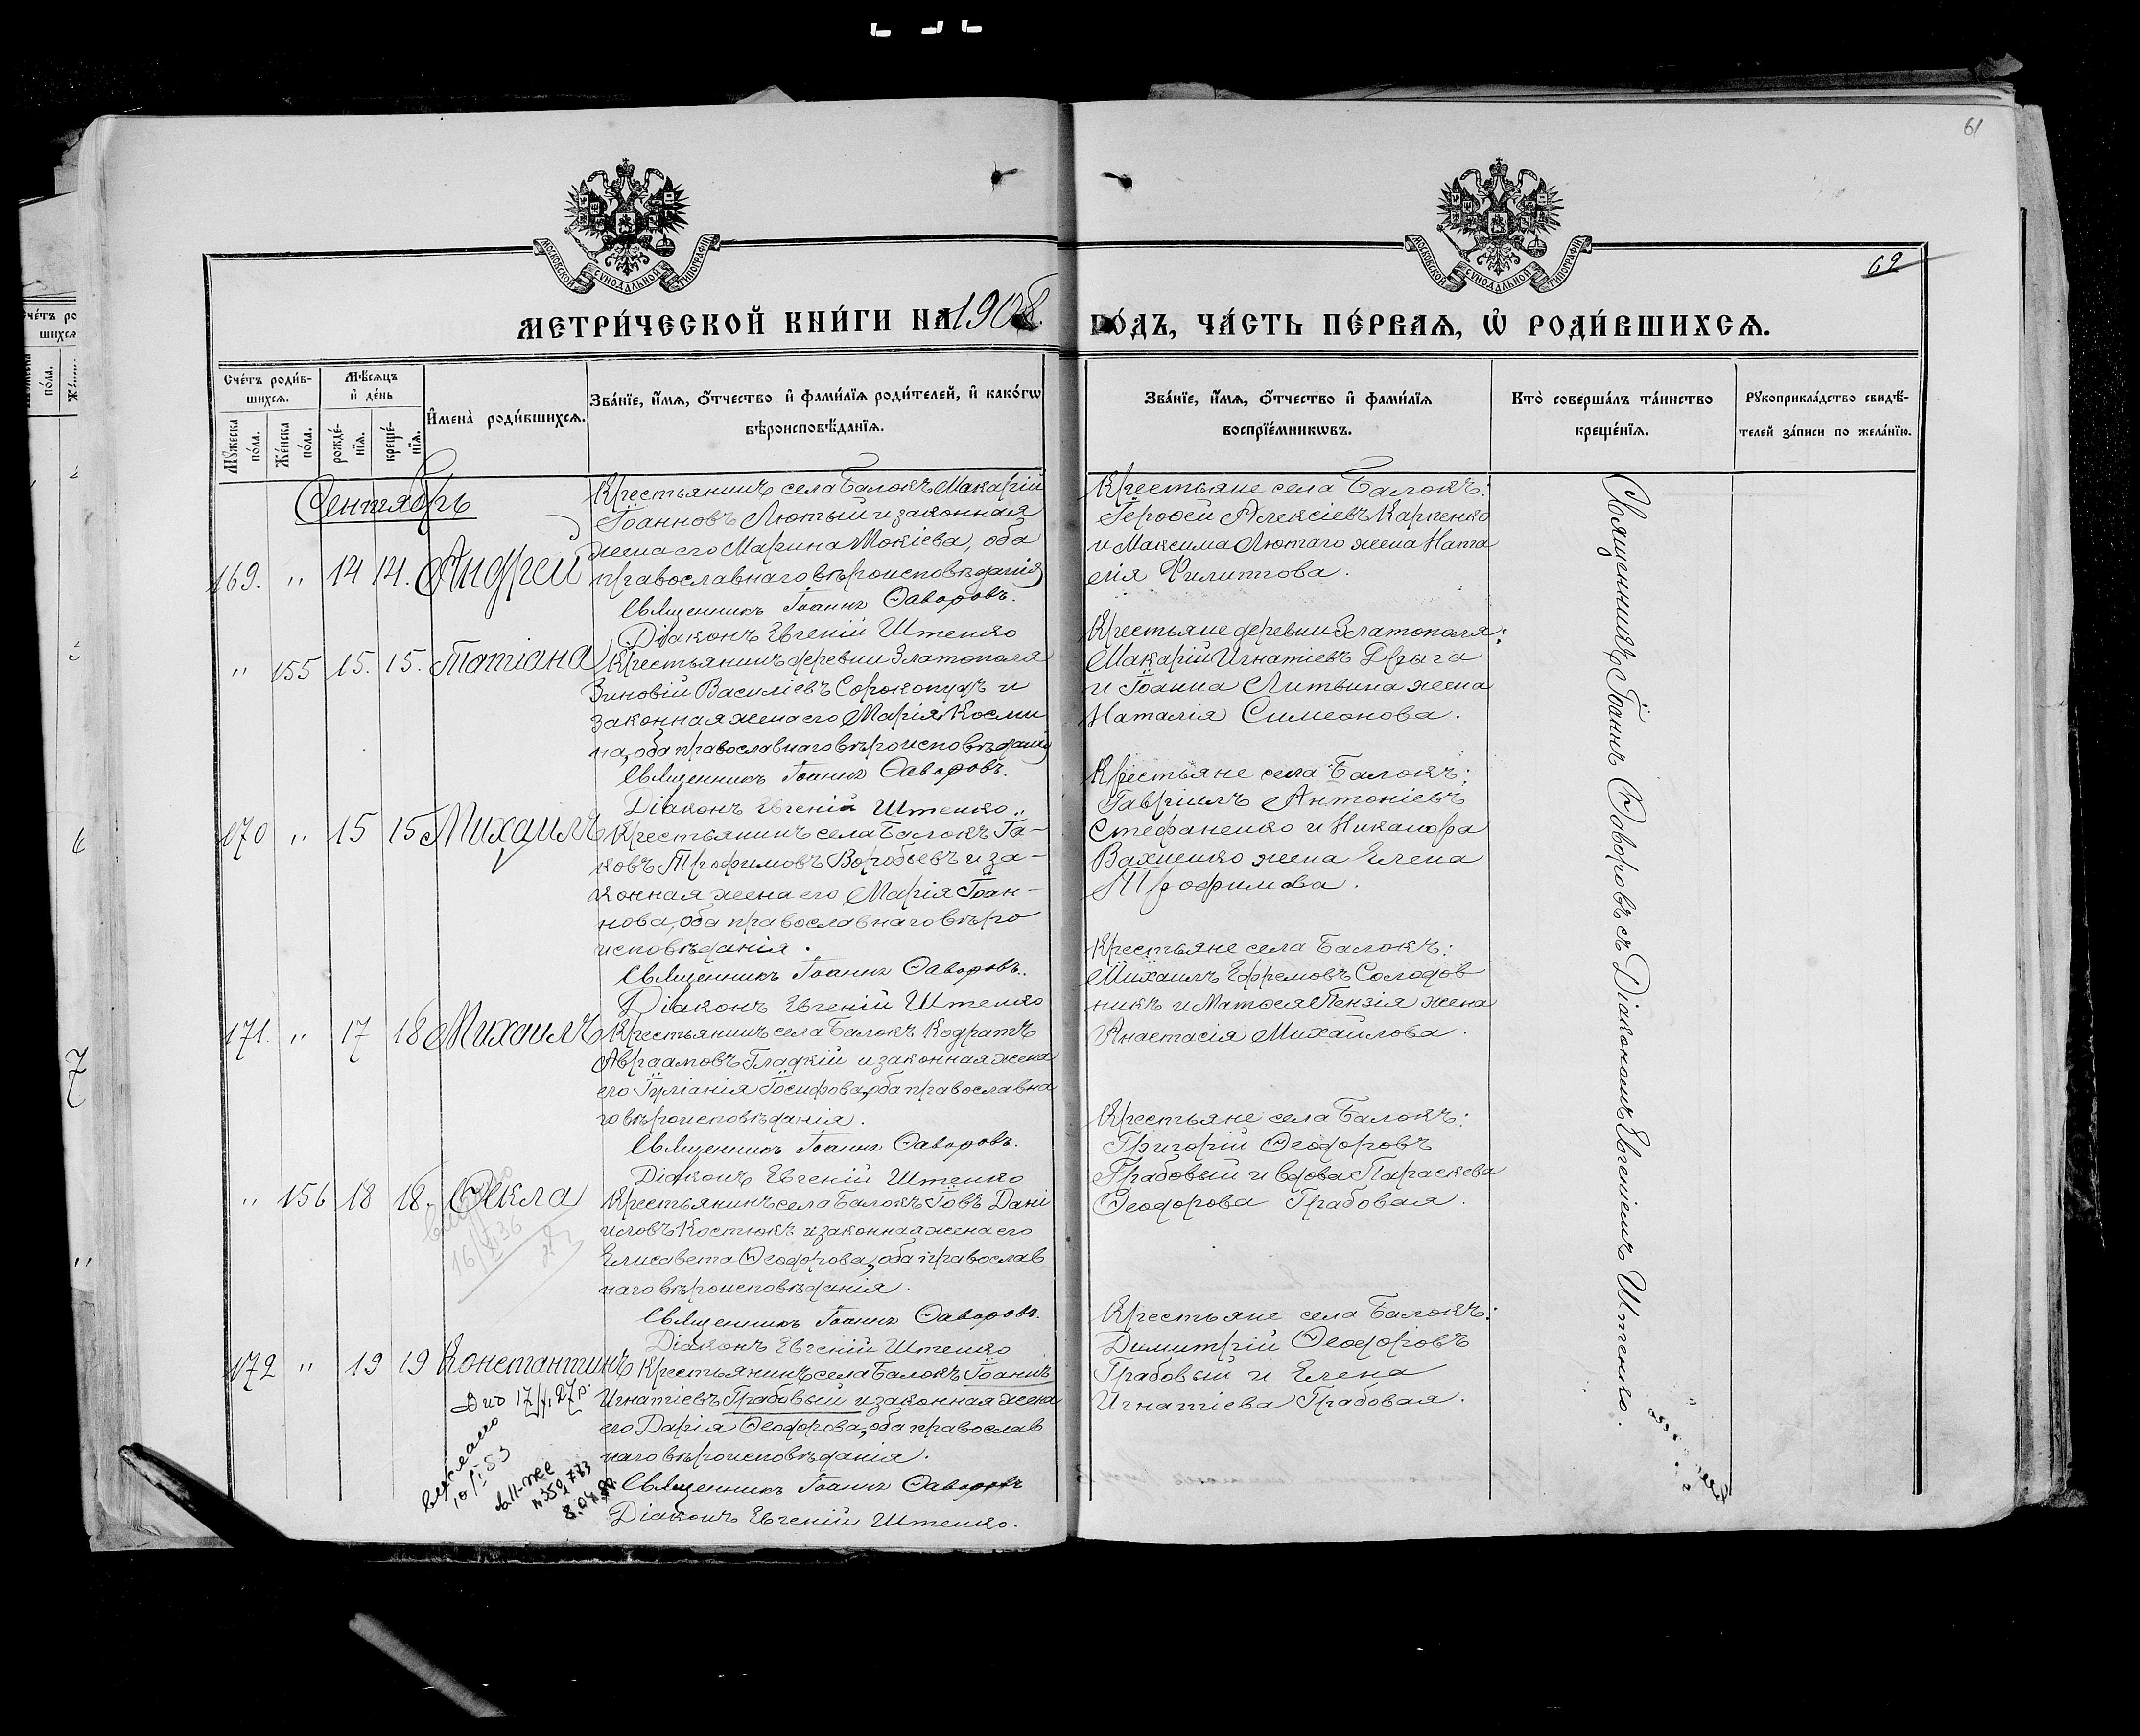 61
МОСКОВСКОЙ СѴНОДАЛЬНОЙ ТИПОГРАФІИ
МОСКОВСКОЙ СѴНОДАЛЬНОЙ ТИПОГРАФІИ
62
МЕТРИ́ЧЕСКОЙ КНИ́ГИ НА 1908 ГО́ДЪ, ЧА́СТЬ ПЕ́РВАѦ, Ѡ҆ РОДИ́ВШИХСѦ.
Сче́тъ роди́в-
шихсѧ.
Мꙋ́жеска по́ла.
Же́нска по́ла.
Мѣ́сѧцъ и҆ де́нь
рожде́-нїѧ.
креще́-нїѧ.
И҆мена̀ роди́вшихсѧ.
Зва́нїе, и҆́мѧ, ѻ҆́тчество и҆ фами́лїѧ роди́телей, и҆ како́гѡ
вѣроисповѣ́данїѧ.
Зва́нїе, и҆́мѧ, ѻ҆́тчество и҆ фами́лїѧ
воспрїе́мникѡвъ.
Кто̀ соверша́лъ та́инство
креще́нїѧ.
Рꙋкоприкла́дство свидѣ́-
телей за́писи по жела́нїю.
Сентябрь
169. " 14 14. Андрей
Крестьянинъ села Балокъ Макарій
Іоанновъ Лютый и законная
жена его Марина Мокіева, оба
православнаго вѣроисповѣданія
Священникъ Іоаннъ Ѳаворовъ.
Діаконъ Евгеній Штенко
Крестьяне села Балокъ:
Іерофей Алексіевъ Карпенко
и Максима Лютаго жена Ната
лія Филиппова.
" 155 15. 15. Татіана
Крестьянинъ деревни Златополя
Зиновій Василіевъ Сорокопудъ и
законная жена его Марія Косми
на, оба православнаго вѣроисповѣданія
Священникъ Іоаннъ Ѳаворовъ.
Діаконъ Евгеній Штенко.
Крестьяне деревни Златополя:
Макарій Игнатіевъ Дрыга
и Іоанна Литвина жена
Наталія Симеонова.
170 " 15 15 Михаилъ
Крестьянинъ села Балокъ Іа-
ковъ Трофимовъ Воробьевъ и за-
конная жена его Марія Іоан-
нова, оба православнаго вѣро
исповѣданія.
Священникъ Іоаннъ Ѳаворовъ.
Діаконъ Евгеній Штенко
Крестьяне села Балокъ:
Гавріилъ Антоніевъ
Стефаненко и Никанора
Вахненко жена Елена
Трофимова.
171. " 17 18 Михаилъ
Крестьянинъ села Балокъ Кодратъ
Авраамовъ Гладкій и законная жена
его Іуліанія Іосифова, оба православна
го вѣроисповѣданія.
Священникъ Іоаннъ Ѳаворовъ.
Діаконъ Евгеній Штенко
Крестьяне села Балокъ:
Михаилъ Ефремовъ Солодов
никъ и Матѳея Пензія жена
Анастасія Михайлова.
" 156 18 18. Ѳекла
16/XI 36
Крестьянинъ села Балокъ Іовъ Дані
иловъ Костюкъ и законная жена его
Елисавета Ѳеодорова, оба православ
наго вѣроисповѣданія.
Священникъ Іоаннъ Ѳаворовъ.
Діаконъ Евгеній Штенко
Крестьяне села Балокъ:
Григорій Ѳеодоровъ
Грабовый и вдова Параскева
Ѳеодорова Грабовая.
172 " 19 19 Константинъ
27 р.
10/I 53
8.04
Крестьянинъ села Балокъ Іоаннъ
Игнатіевъ Грабовый и законная жена
его Дарія Ѳеодорова, оба православ
наго вѣроисповѣданія.
Священникъ Іоаннъ Ѳаворовъ
Діаконъ Евгеній Штенко.
Крестьяне села Балокъ:
Димитрій Ѳеодоровъ
Грабовый и Елена
Игнатіева Грабовая.
Священникъ Іоаннъ Ѳаворовъ съ Діакономъ Евгеніемъ Штенко.